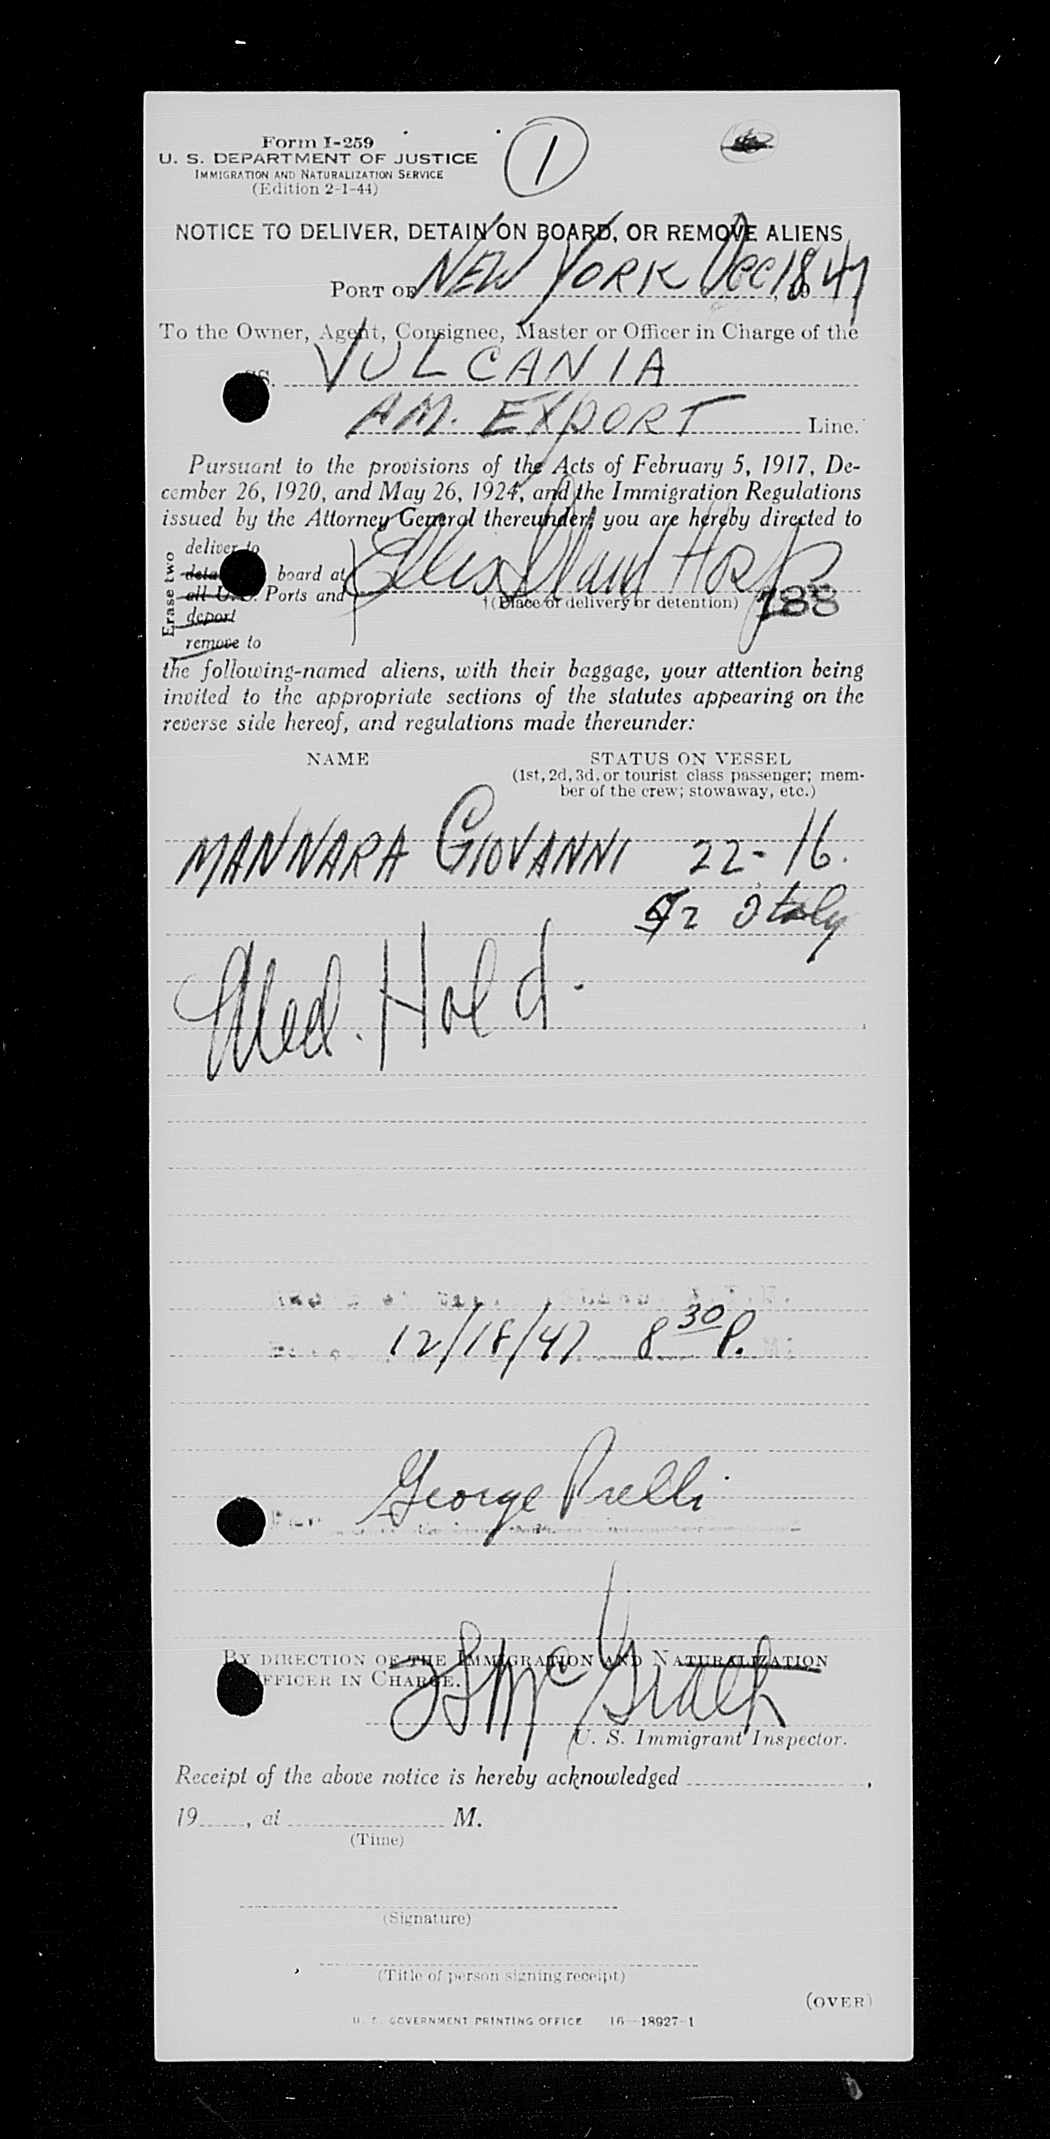 Form I-259
U. S. DEPARTMENT OF JUSTICE
IMMIGRATION AND NATURALIZATION SERVICE
(Edition 2-1-44)
1
NOTICE TO DELIVER, DETAIN ON BOARD, OR REMOVE ALIENS
PORT OF NEW YORK Dec 18, 1947
To the Owner, Agent, Consignee, Master or Officer in Charge of the
SS. VULCANIA
AM. EXPORT Line.
Pursuant to the provisions of the Acts of February 5, 1917, De-
cember 26, 1920, and May 26, 1924, and the Immigration Regulations
issued by the Attorney General thereunder, you are hereby directed to
Erase two
deliver to
board at
all U. S. Ports and
deport
remove to
Ellis Island Hosp
(Place of delivery or detention)
188
the following-named aliens, with their baggage, your attention being
invited to the appropriate sections of the statutes appearing on the
reverse side hereof, and regulations made thereunder:
NAME STATUS ON VESSEL
(1st, 2d, 3d, or tourist class passenger; mem-
ber of the crew; stowaway, etc.)
MANNARA GIOVANNI 22-16.
Italy
Med. Hold.
12/18/47 8 30 P.
George Prelli
BY DIRECTION OF THE IMMIGRATION AND NATURALIZATION
OFFICER IN CHARGE.
McGrath
U. S. Immigrant Inspector.
Receipt of the above notice is hereby acknowledged ,
19 , at M.
(Time)
(Signature)
(Title of person signing receipt)
(OVER)
U. S. GOVERNMENT PRINTING OFFICE 16—18927-1